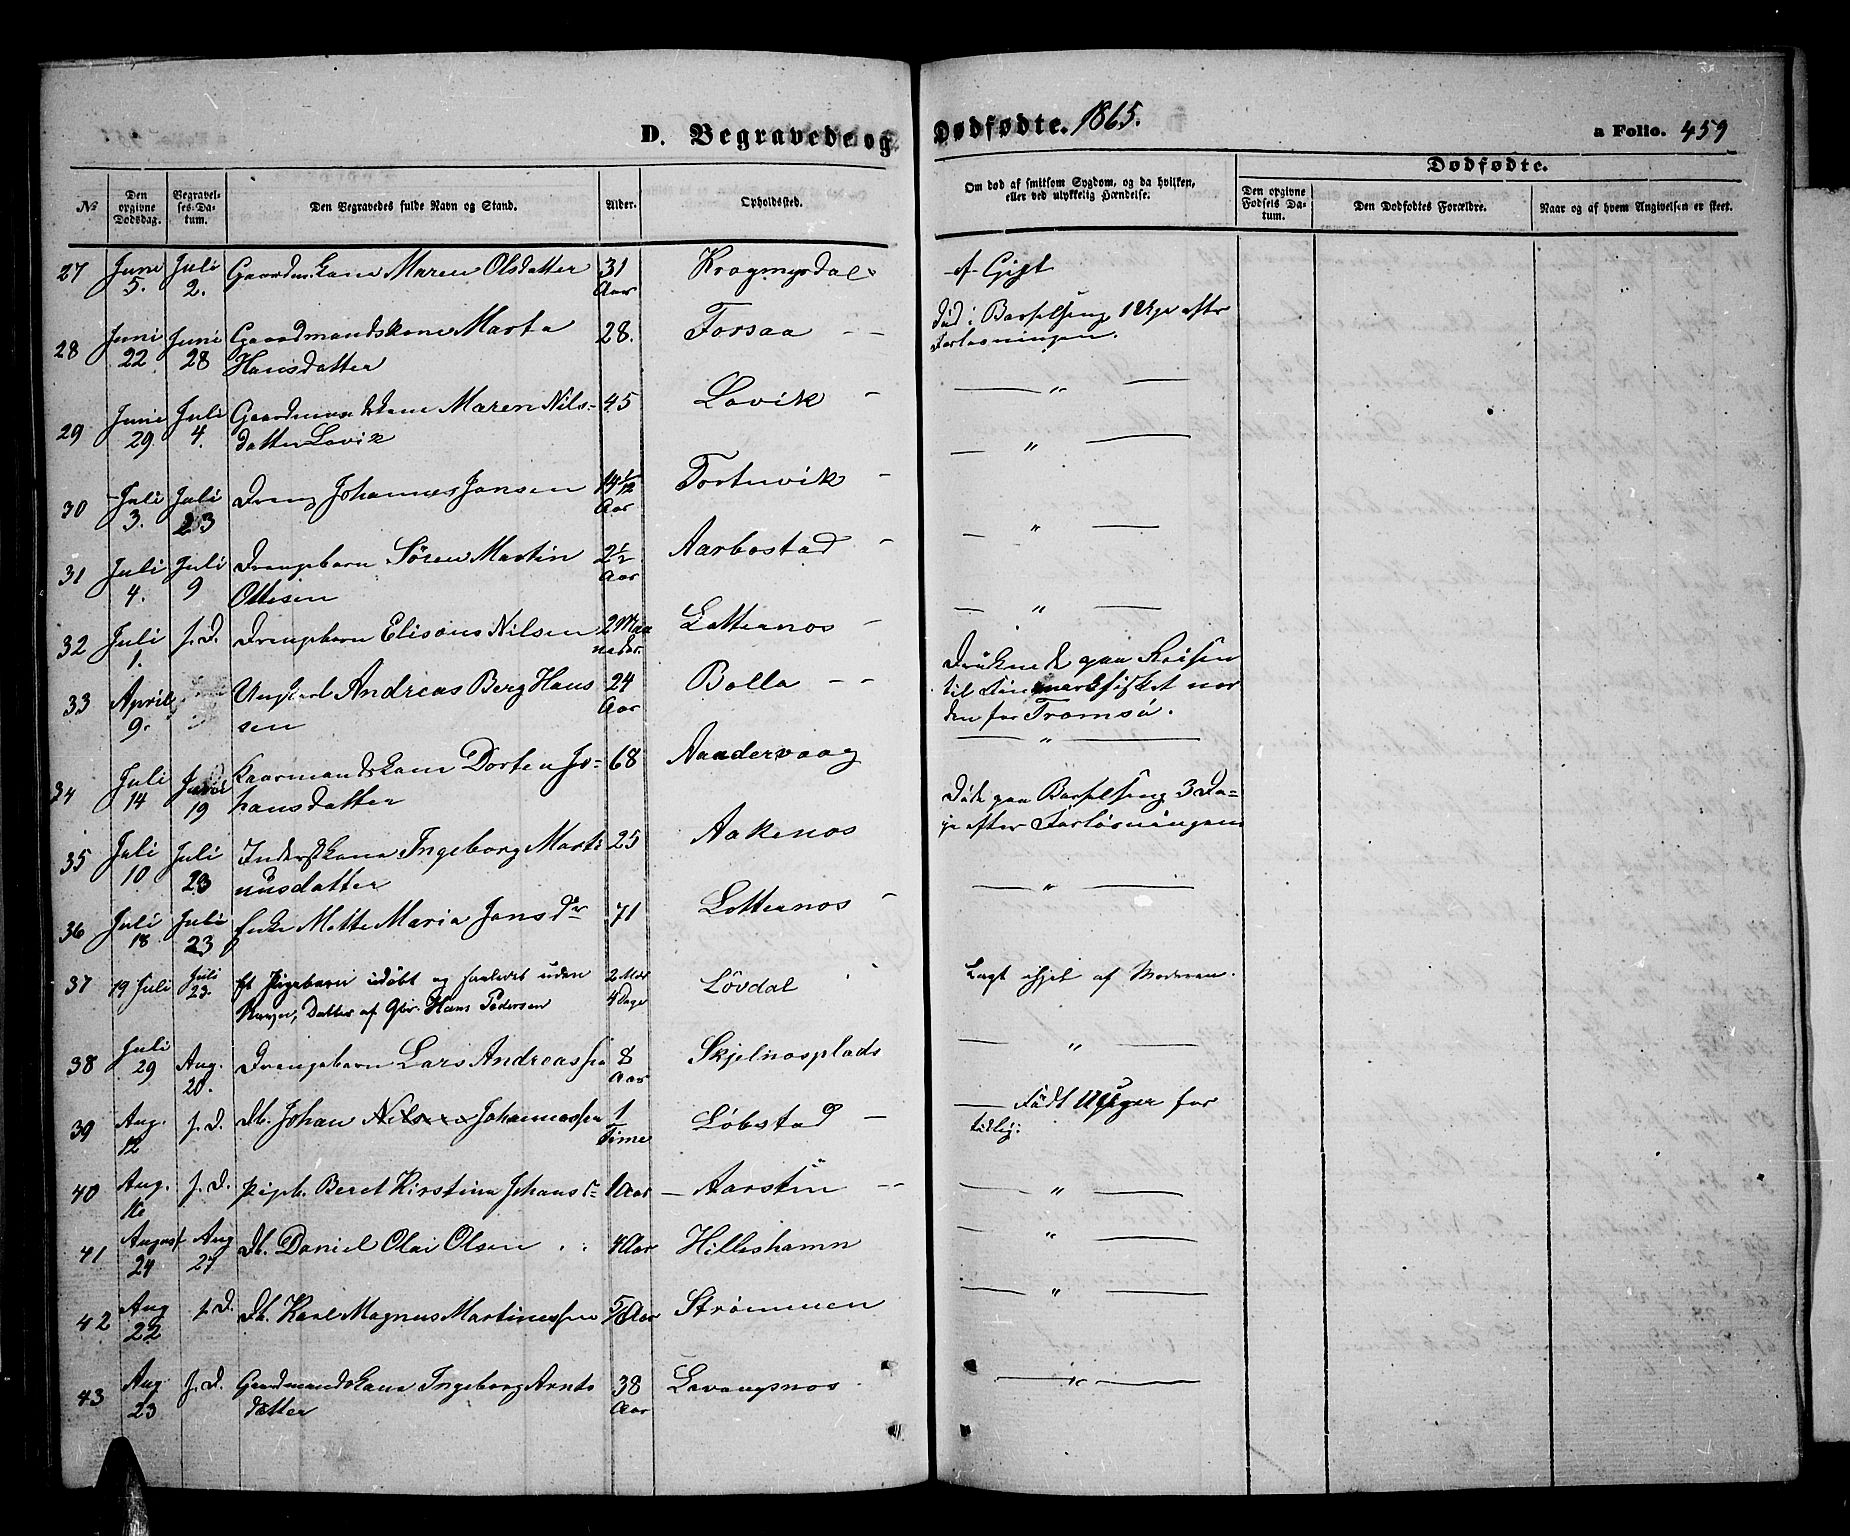 D. Begravede og Dødfødte. 1865.
a Folio. 459
Dødfødte.
№ Den opgivne Dødsdag. Begravelses-Datum. Den Begravedes fulde Navn og Stand. Alder. Opholdssted. Om død af smitsom Sygdom, og da hvilken, eller ved ulykkelig Hændelse. Den opgivne Fødsels Datum. Den Dødfødtes Forældre. Naar og af hvem Angivelsen er skeet.
27 Juni 5. Juli 2. Gaardm.kone Maren Olsdatter 31 Aar Krogmyrdal af Gigt
28 Juni 22 Juni 28 Gaardmandskone Marta 28. Forsaa død i Barselseng 1 Uge efter
Hansdatter Forløsningen.
29 Juni 29 Juli 4. Gaardmandskone Maren Nils- 45 Lavik — " —
datter Lavik
30 Juli 3. Juli 23 Dreng Johannes Jansen 14 1/12 Aar Tortenvik — " —
31 Juli 4. Juli 9 Drengebarn Sören Martin 2½ Aar Aarbostad — " —
Ottesen
32 Juli 1. s. D. Drengebarn Elisæus Nilsen 2 Maaneder. Lotternes — " —
33 April 9. Ungkarl Andreas Berg Han 24 Aar Bolla Druknede paa Reisen
sen til Finmarksfisket nor
den for Tromsö.
34 Juli 14 19 Kaarmandskone Dorte Jo- 68 Aandervaag — " —
hansdatter
35 Juli 10 Juli 23 Inderstkone Ingeborg Marti 25 Aakenes Døde paa Barselseng 3 Da-
nusdatter ge efter Forløsningen
36 Juli 18 Juli 23 Enke Mette Maria Jansdr 71 Lotternes — " —
37 19 Juli Juli 23. Et Pigebarn udøbt og saaledes uden 2 Mdr 4 Dage Lövdal Lagt ihjel af Moderen.
Navn, Datter af Gbr. Hans Pedersen
38 Juli 29 Aug. 20. Drengebarn Lars Andreassen 8 Aar Skjelnesplads — " —
39 Aug. 12 s. D. Db. Johan Nilsen Johannessen 1 Time Løbstad — Født Uger for
tidlig:
40 Aug. 16 s. D. Pigeb. Beret Kirstina Johansd 1 Aar Aarstin — " —
41 August 24 Aug 27 Db. Daniel Olai Olsen 4 Aar Hilleshamn — " —
42 Aug 22 s. D. Db. Karl Magnus Martinussen Aar Strømmen — " —
43 Aug 23 s. D. Gaardmandskone Ingeborg Arnts 38 Aar Lavangsnes — " —
datter